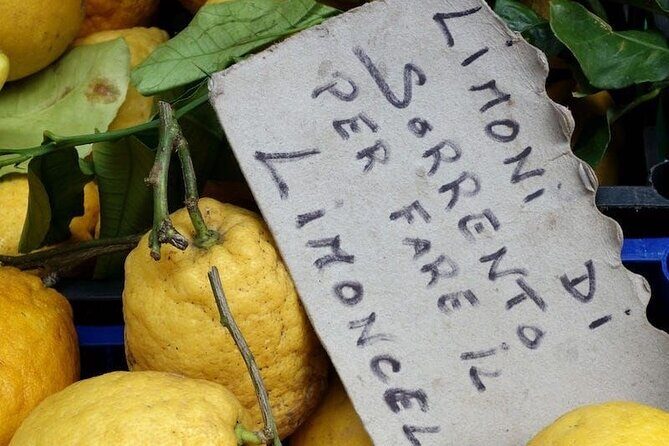 LIMONI DI
SORRENTO
PER FARE IL
LIMONCEL